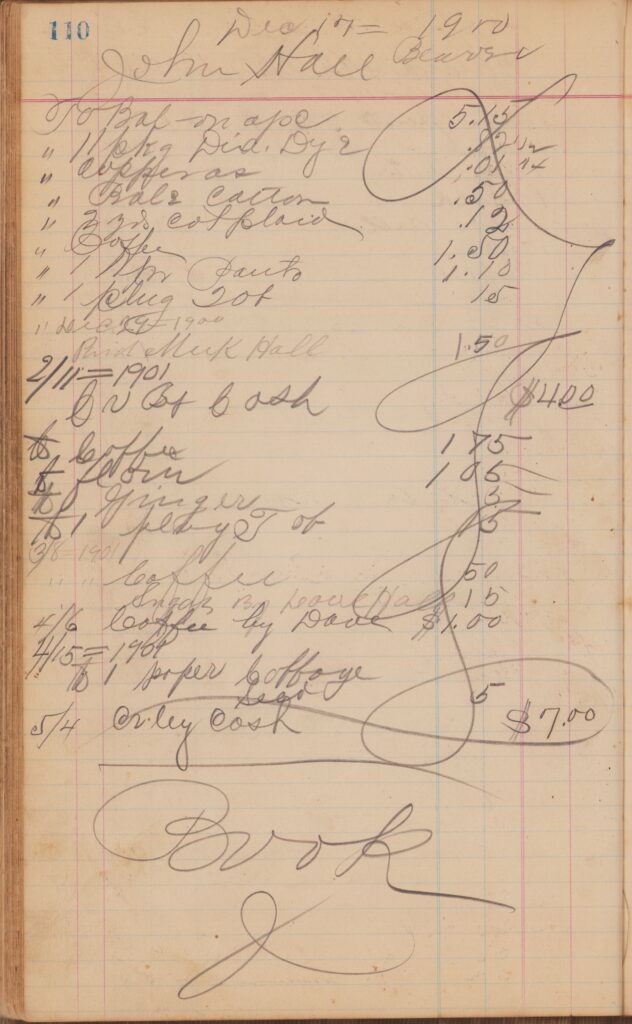 110
Dec 17 = 1900
John Hall Beaver
To Bal on apc 5.15
" 11 pkg Did. Dye .82 1/2
" Copperas .01 1/4
" Bale Cotton .50
" 2 yds cotplaid .12
" Coffee 1.50
" 1 pr Pants 1.10
" 1 plug Tob 15
" Dec 29 = 1900
Paid Hall 1.50
2/11 = 1901
Cr By Cash $4.00
To Coffee 1 75
To flour 1 05
To Ginger 5
To 1 plug Tob 5
3/8 = 1901
" " Coffee 50
Sugar By Hall 15
4/6 Coffee by Dave $1.00
4/15 = 1901
To 1 paper Cabbage
Seed 5
5/4 Cr by Cash $7.00
Book